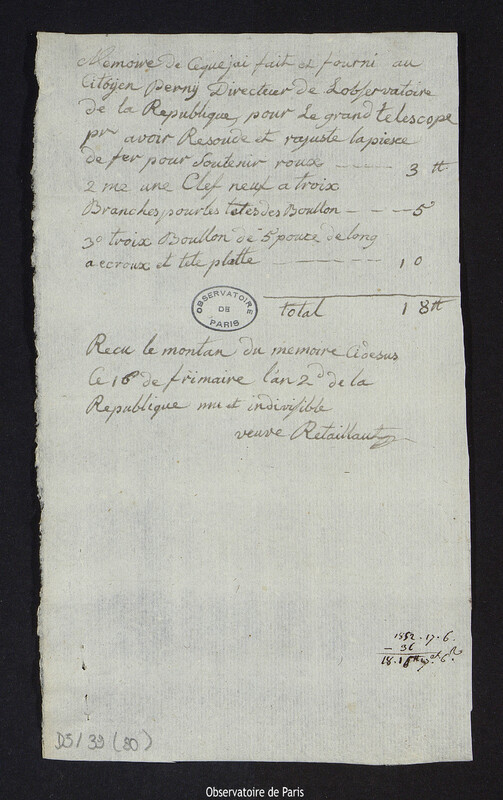 Memoire de ceque jai fait et fourni au
Citoyen Perny Directeur de Lobservatoire
de la Republique, pour Le grand telescope
pr avoir Resoude et rajuste lapiesse
de fer pour Soutenir roux - - - 3 tt
2 me une Clef neuf a troix
Branches pour les tetes des Boullon - - - 5
3o troix Boullon de 5 pouce de long
a ecroux et tete platte - - - 10
total 18 tt
OBSERVATOIRE
DE
PARIS
Recu le montan du memoire Cidesus
Ce 16 de frimaire l'an 2d de la
Republique une et indivisible
veuve Retaillaut
1852.17.6.
- 36
D5/39 (80)
Observatoire de Paris